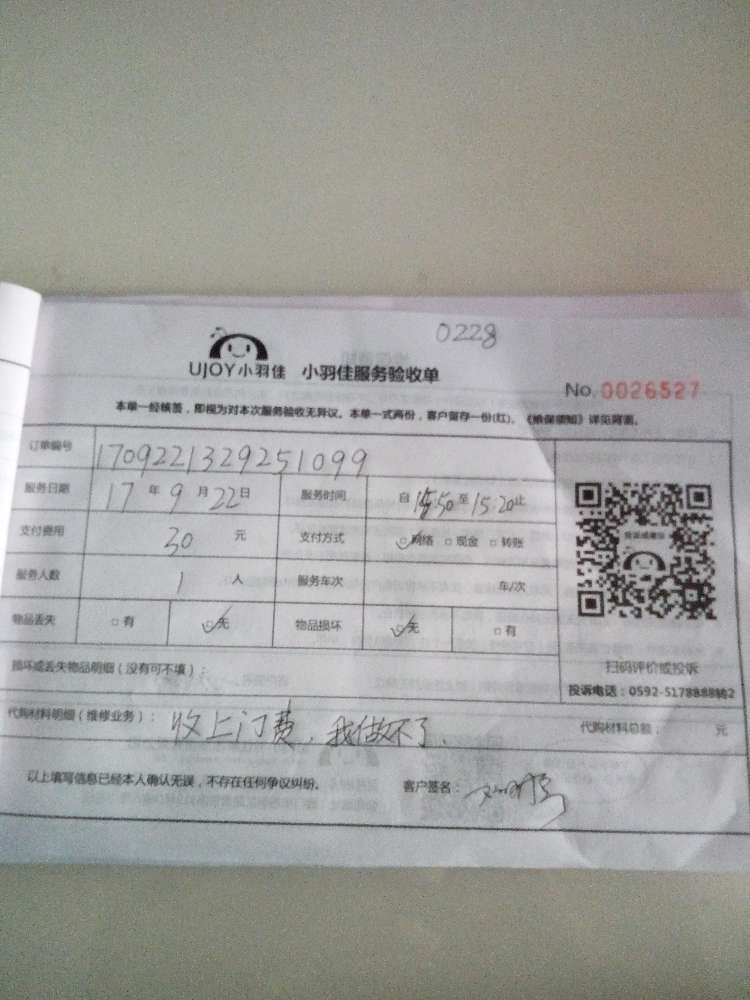 0228
UJOY小羽佳 小羽佳服务验收单
No. 0026527
本单一经核签，即视为对本次服务验收无异议。本单一式两份，客户留存一份(红)。《维保须知》详见背面。
订单编号 1709221329251099
服务日期 17 年 9 月 22 日 服务时间 自 :50 至 15:20 止
支付费用 30 元 支付方式 网络 □ 现金 □ 转账
服务人数 1 人 服务车次 车/次
物品丢失 □ 有 无 物品损坏 无 □ 有
扫码评价或投诉
损坏或丢失物品明细（没有可不填）：
投诉电话：0592-5178888转2
代购材料明细（维修业务）： 收上门费，我做不了. 代购材料总额： 元
以上填写信息已经本人确认无误，不存在任何争议纠纷。 客户签名：